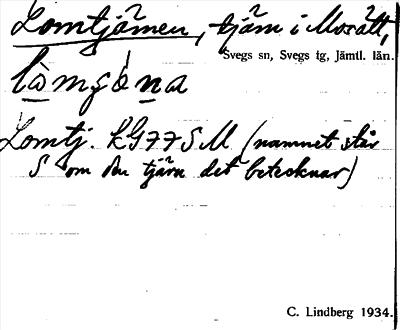 Lomtjärnen, tjärn i Morätt,
Svegs sn, Svegs tg, Jämtl. län.
Lomtj. KG77SM (namnet står
S om den tjärn det betecknar)
C. Lindberg 1934.